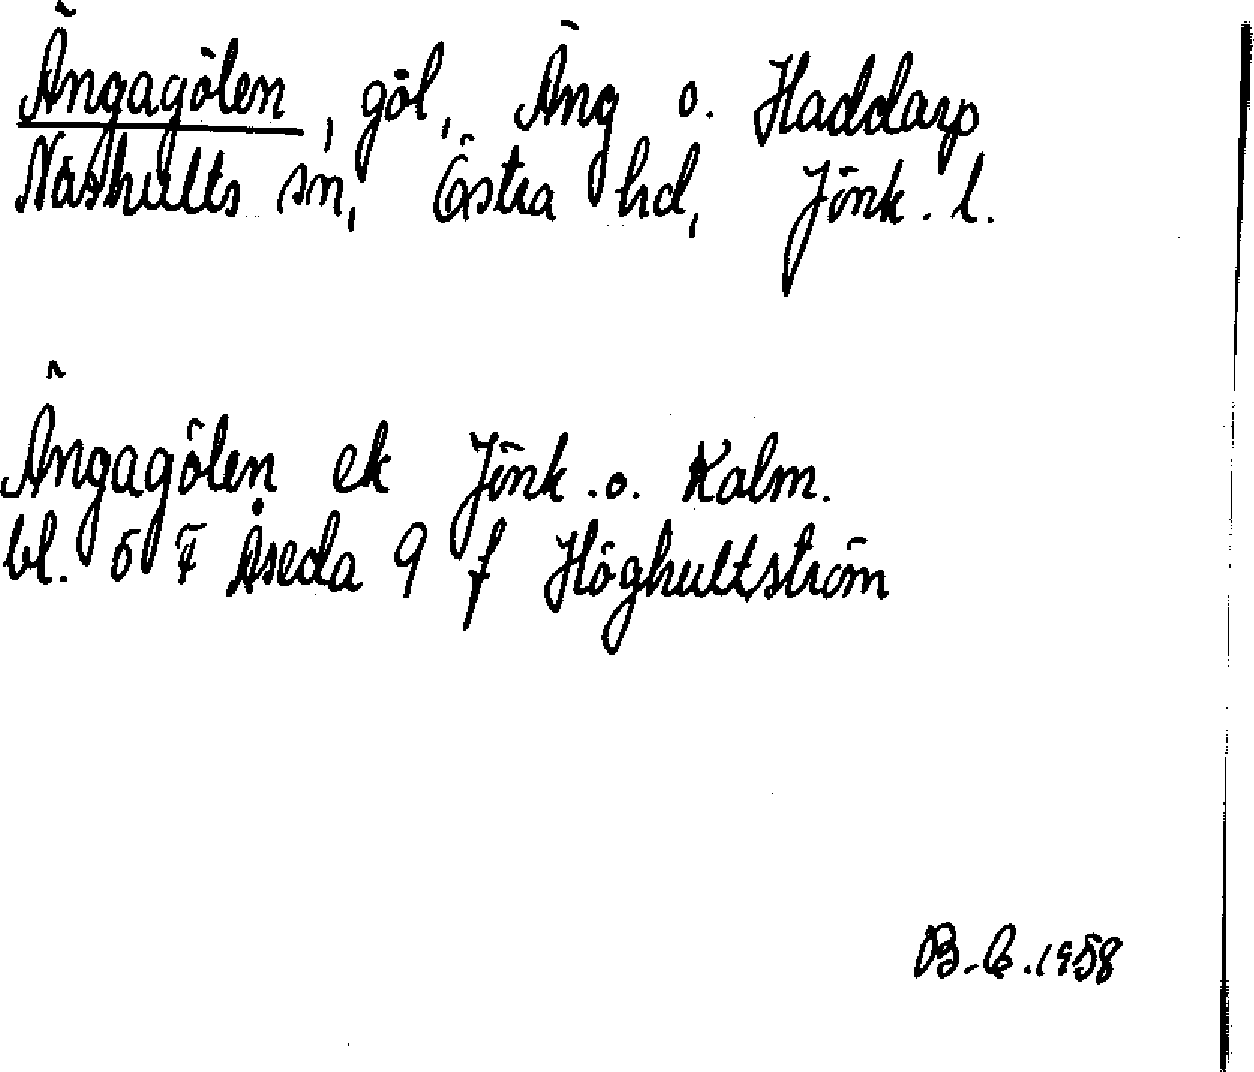 Ängagölen, göl, Äng o. Haddarp
Näshults sn, Östra hd, Jönk. l.
Ängagölen ek Jönk. o. Kalm.
bl. 5 F Åseda 9 f Höghultström
B.C. 1958